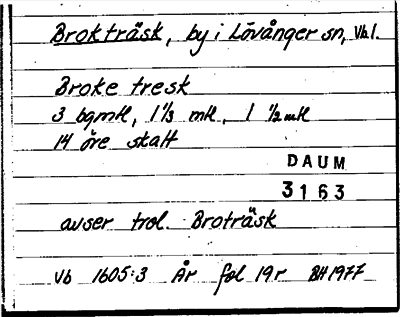 Brokträsk, by i Lövånger sn, Vbl.
Broke tresk
3 bgmtl, 1 1/3 mtl, 1 1/2 mtl
14 öre skatt
DAUM
3163
avser trol. Broträsk
Vb 1605:3 År fol 19r BH 1977